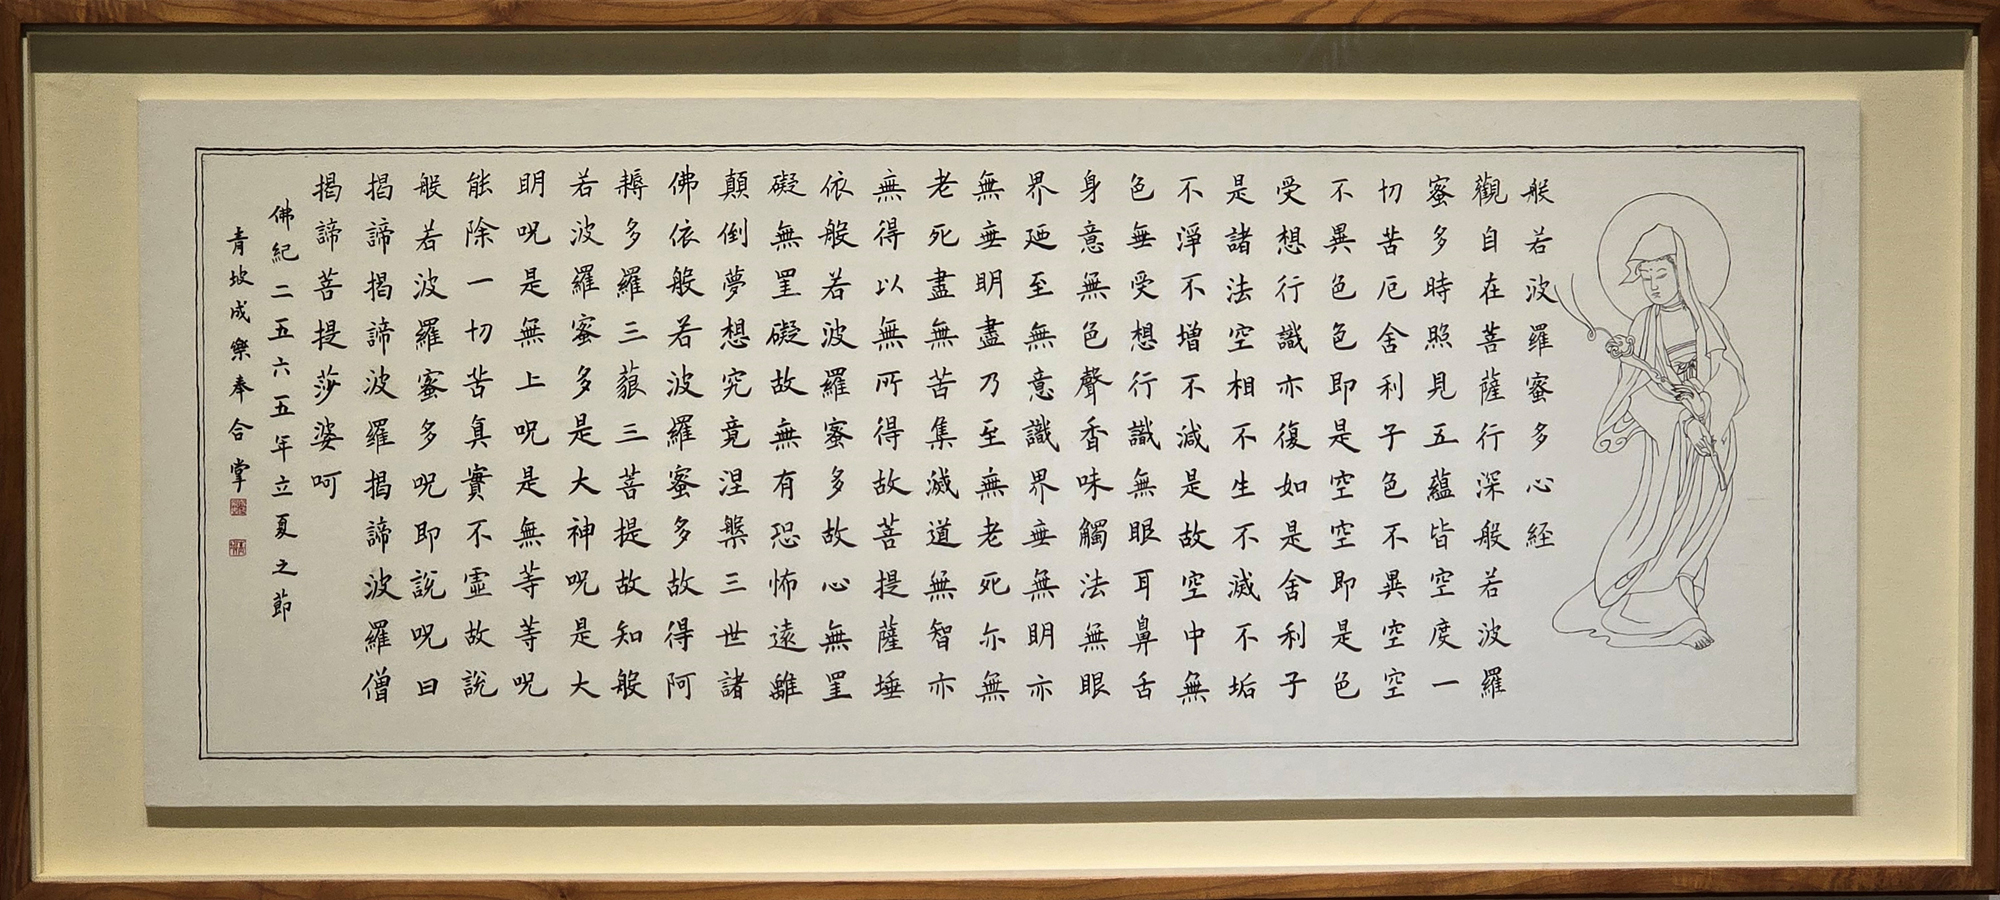 般若波羅蜜多心経
觀自在菩薩行深般若波羅
蜜多時照見五蘊皆空度一
切苦厄舍利子色不異空空
不異色色即是空空即是色
受想行識亦復如是舍利子
是諸法空相不生不滅不垢
不淨不增不減是故空中無
色無受想行識無眼耳鼻舌
身意無色聲香味觸法無眼
界廼至無意識界無無明亦
無無明盡乃至無老死亦無
老死盡無苦集滅道無智亦
無得以無所得故菩提薩埵
依般若波羅蜜多故心無罣
礙無罣礙故無有恐怖遠離
顛倒夢想究竟涅槃三世諸
佛依般若波羅蜜多故得阿
耨多羅三藐三菩提故知般
若波羅蜜多是大神呪是大
明呪是無上呪是無等等呪
能除一切苦真實不虛故說
般若波羅蜜多呪即說呪曰
揭諦揭諦波羅揭諦波羅僧
揭諦菩提莎婆呵
佛紀二五六五年立夏之節
青坡成樂奉合掌